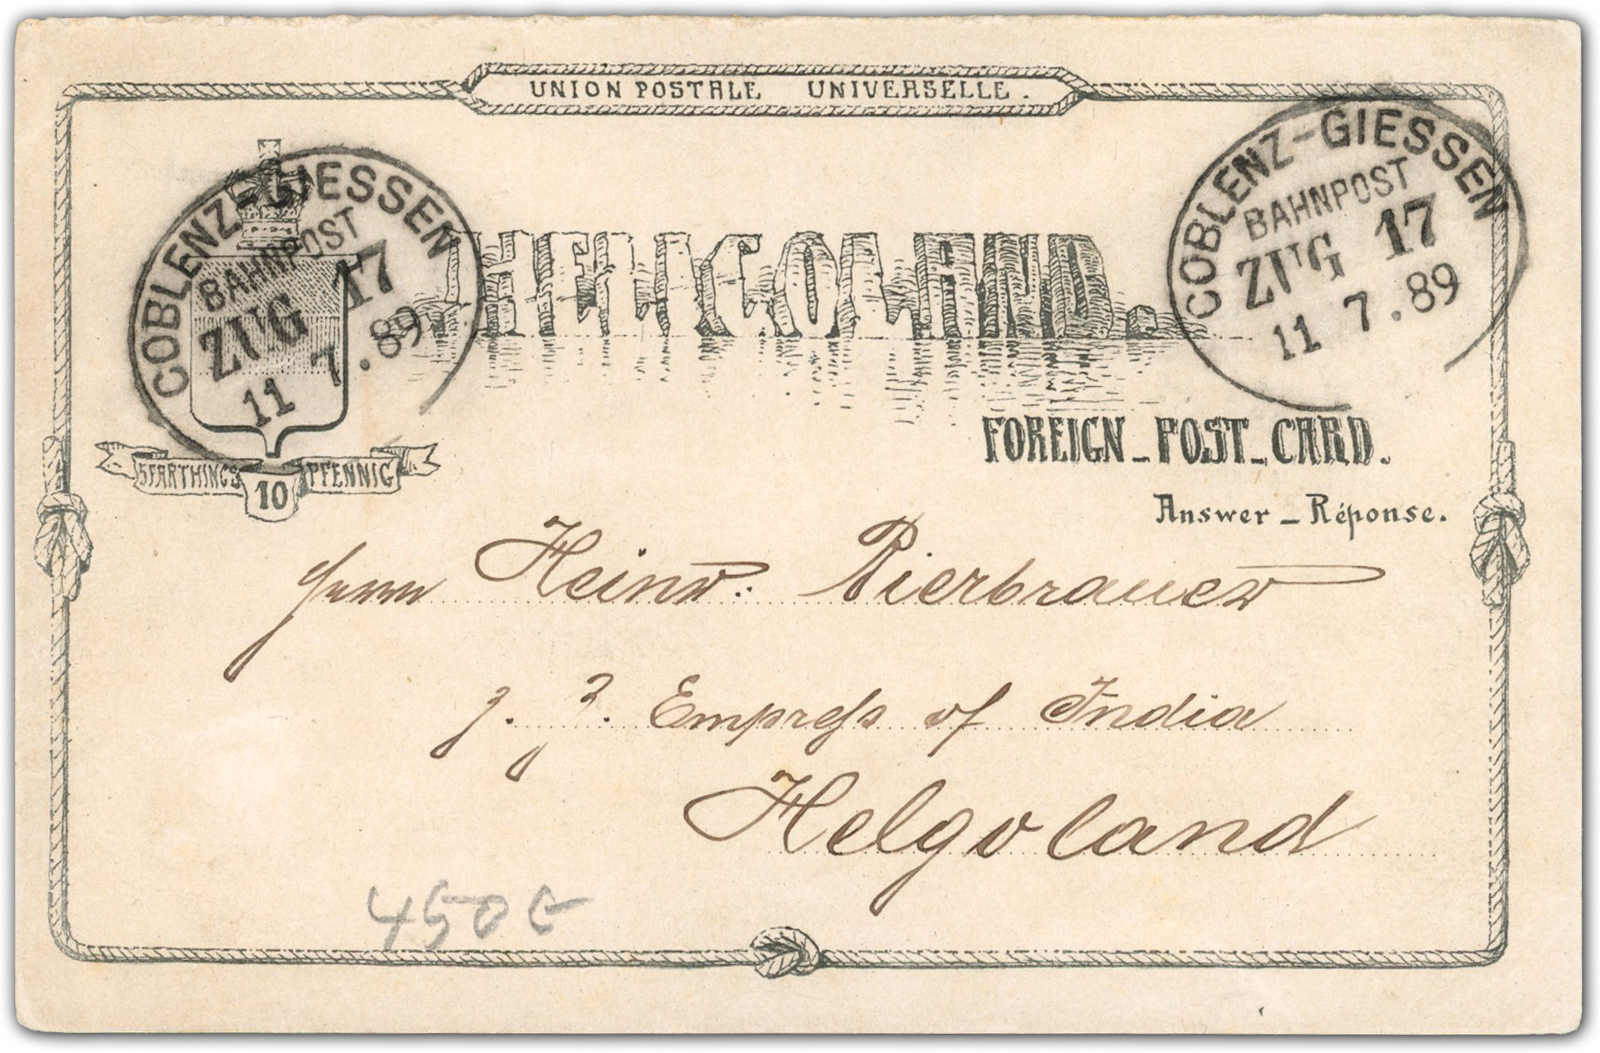 UNION POSTALE UNIVERSELLE.
COBLENZ-GIESSEN
BAHNPOST
ZUG 17
11 7.89
HELIGOLAND.
COBLENZ-GIESSEN
BAHNPOST
ZUG 17
11 7.89
FOREIGN_POST_CARD.
Answer_Réponse.
5 FARTHINGS 10 PFENNIG
Herrn Heinr: Bierbrauer
z. Z. Empress of India
Helgoland
450